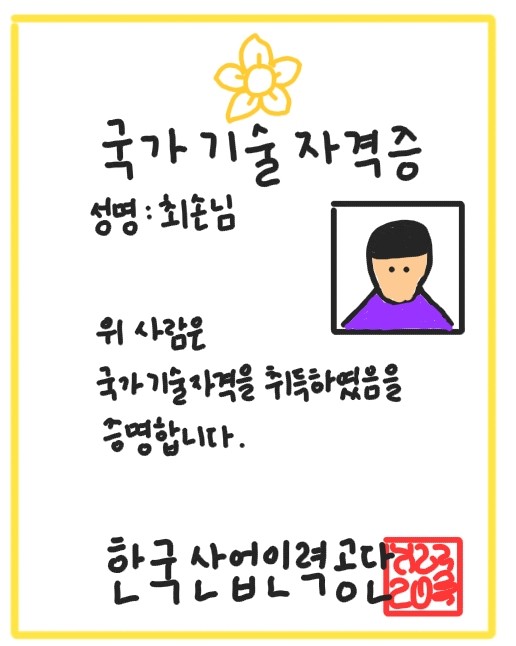 국가기술자격증
성명 : 최손님
위 사람은
국가기술자격을 취득하였음을
증명합니다.
한국산업인력공단